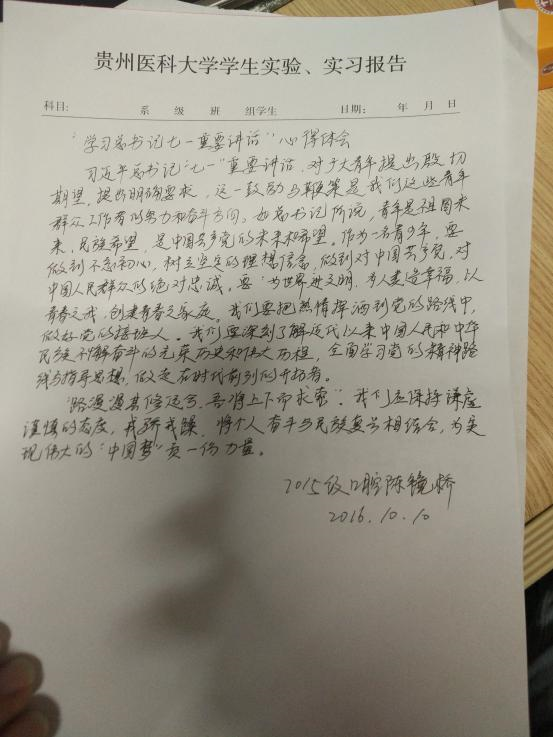 贵州医科大学学生实验、实习报告
科目: 系 级 班 组学生 日期: 年 月 日
"学习总书记七一重要讲话"心得体会
习近平总书记"七一"重要讲话，对广大青年提出殷切
期望，提出明确要求，这一鼓励与鞭策是我们这些青年
群众工作者的努力和奋斗方向，如总书记所说，青年是祖国未
来，民族希望，是中国共产党的未来和希望。作为一名青少年，要
做到不忘初心，树立坚定的理想信念，做到对中国共产党，对
中国人民群众的绝对忠诚。要"为世界进文明，为人类造幸福，以
青春之我，创建青春之家庭。我们要把热情挥洒到党的路线中，
做好党的接班人。我们要深刻了解近代以来中国人民和中华
民族不懈奋斗的光荣历史和伟大历程，全面学习党的精神路
线与指导思想，做走在时代前列的开拓者。
"路漫漫其修远兮，吾将上下而求索"。我们应保持谦虚
谨慎的态度，戒骄戒躁，将个人奋斗与民族复兴相结合，为实
现伟大的"中国梦"贡一份力量。
2015级口腔陈镜桥
2016.10.10